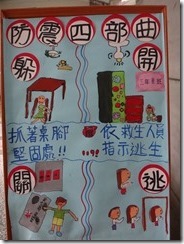 防震四部曲
躲
開
抓著桌腳
堅固處!!
依救生人員
指示逃生
關
逃